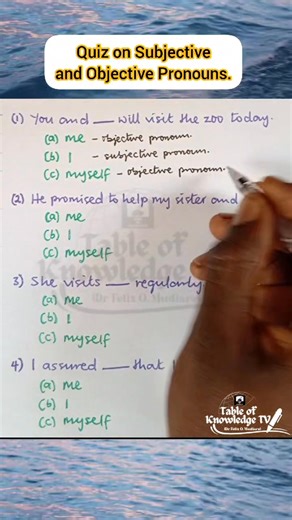 Quiz on Subjective
and Objective Pronouns.
(1) You and ___ will visit the zoo today.
(a) me - objective pronoun.
(b) I - subjective pronoun.
(c) myself - objective pronoun.
(2) He promised to help my sister and
(a) me
(b) I
(c) myself
3) She visits ___ regularly
(a) me
(b) I
(c) myself
4) I assured ___ that I
(a) me
(b) I
(c) myself
Table of
Knowledge TV
Table of
Knowledge TV